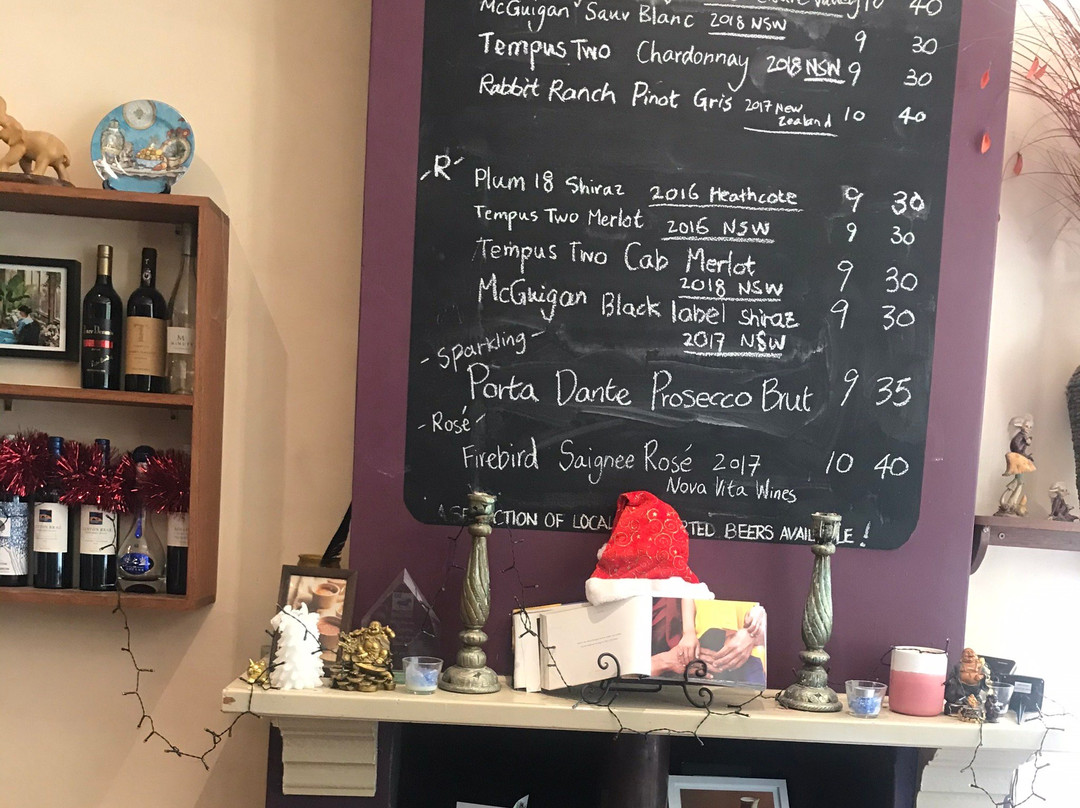 Valley 10 40
McGuigan Sauv Blanc 2018 NSW 9 30
Tempus Two Chardonnay 2018 NSW 9 30
Rabbit Ranch Pinot Gris 2017 New Zealand 10 40
-R-
Plum 18 Shiraz 2016 Heathcote 9 30
Tempus Two Merlot 2016 NSW 9 30
Tempus Two Cab Merlot 9 30
2018 NSW
McGuigan Black label Shiraz 9 30
2017 NSW
- Sparkling -
Porta Dante Prosecco Brut 9 35
- Rosé -
Firebird Saignee Rosé 2017 10 40
Nova Vita Wines
A SE CTION OF LOCAL RTED BEERS AVAIL LE!